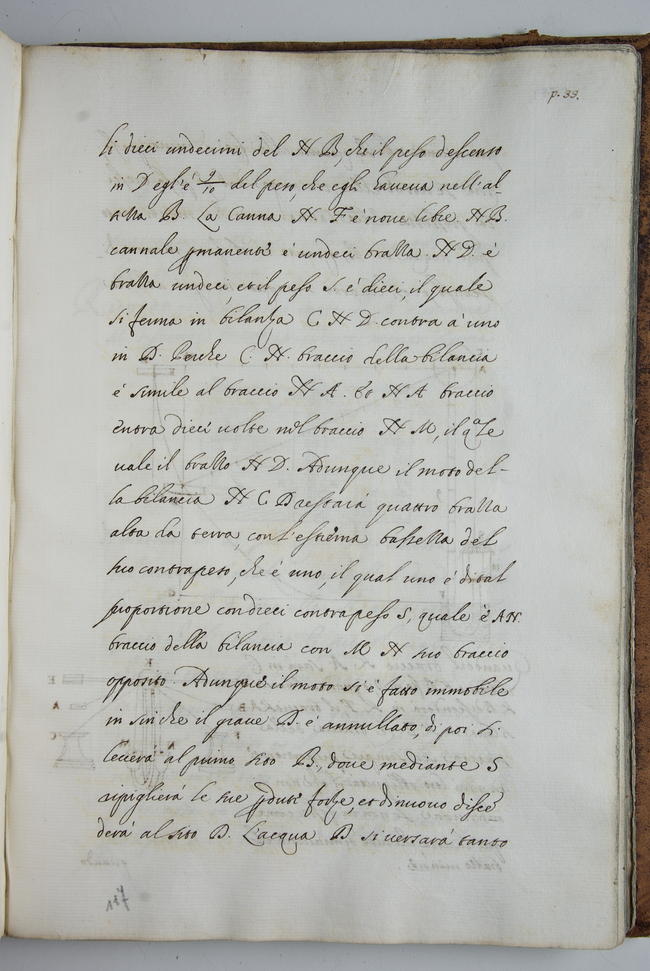 p. 33.
li dieci undecimi del N B, che il peso descenso
in D egl'è 9/10 del peso, che egli haveva nell'al-
tezza B. La Canna N. F è nove libre. N B.
cannale permanente è undeci bralla. N D. è
bralla undeci, et il peso S. è dieci, il quale
si ferma in bilanza C N D. contra à uno
in D. Perche C. N. braccio della bilancia
è simile al braccio N A. et N A braccio
entra dieci volte nel braccio N M, il qale
vale il brallo N D. Adunque il moto del-
la bilancia N C D restarà quattro bralla
alta da terra, con l'estrema bassezza del
suo contrapeso, che è uno, il qual uno è di tal
proportione con dieci contrapeso S, quale è A N.
braccio della bilancia con M N suo braccio
opposito. Adunque il moto si è fatto immobile
in sin che il grave D. è annullato, di poi si
leverà al primo sito B., dove mediante S
ripiglierà le sue perdute forze, et di nuovo disce
derà al sito D. L'acqua D si versarà tanto